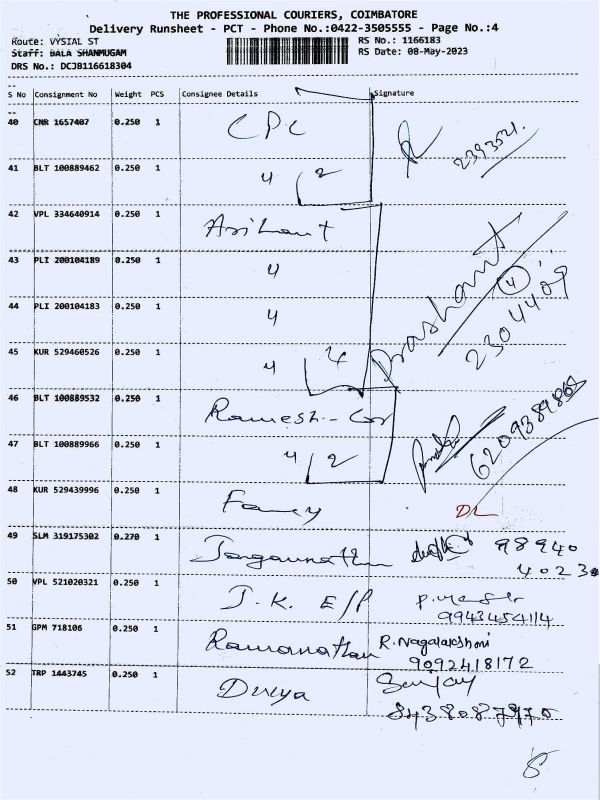 THE PROFESSIONAL COURIERS, COIMBATORE
Delivery Runsheet - PCT - Phone No.:0422-3505555 - Page No.:4
Route: VYSIAL ST
RS No.: 1166183
Staff: BALA SHANMUGAM
RS Date: 08-May-2023
DRS No.: DCJB116618304
S No Consignment No Weight PCS Consignee Details Signature
40 CNR 1657407 0.250 1 CPC
2393521.
41 BLT 100889462 0.250 1 " 2
42 VPL 334640914 0.250 1 Arihant
43 PLI 200104189 0.250 1 " Prashant 4
44 PLI 200104183 0.250 1 " 2304409
45 KUR 529460526 0.250 1 " 4
46 BLT 100889532 0.250 1 Ramesh-Cor
47 BLT 100889966 0.250 1 " 2
48 KUR 529439996 0.250 1 Fancy DL
49 SLM 319175302 0.270 1 Jagannathan 98940
4023
50 VPL 521020321 0.250 1 J.K. E/P
9943454114
51 GPM 718106 0.250 1 Ramanathan R. Nagalakshmi
9092418172
52 TRP 1443745 0.250 1 Divya Sanjay
8438087970